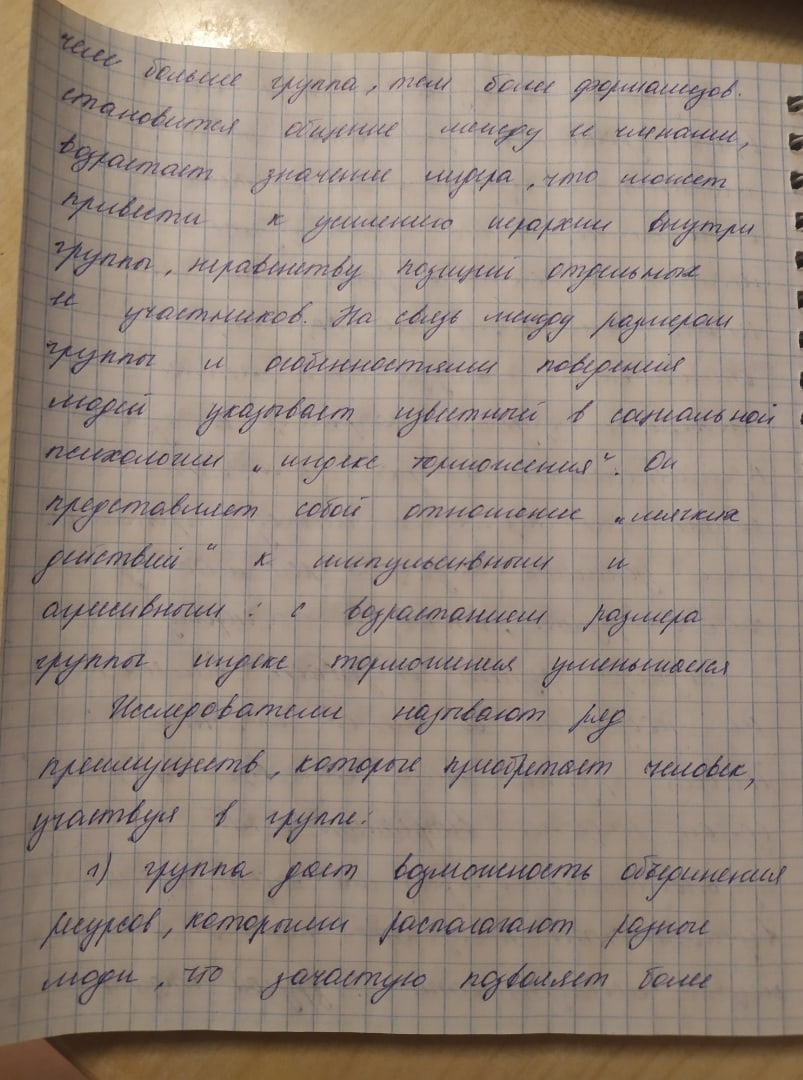 чем больше группа, тем более формализов.
становится общение между ее членами,
возрастает значение лидера, что может
привести к усилению иерархии внутри
группы, неравенству позиций отдельных
ее участников. На связь между размером
группы и особенностями поведения
людей указывает известный в социальной
психологии „индекс торможения“. Он
представляет собой отношение „мягких
действий“ к импульсивным и
агрессивным: с возрастанием размера
группы индекс торможения уменьшается
Исследователи называют ряд
преимуществ, которые приобретает человек,
участвуя в группе:
1) группа дает возможность объединения
ресурсов, которыми располагают разные
люди, что зачастую позволяет более